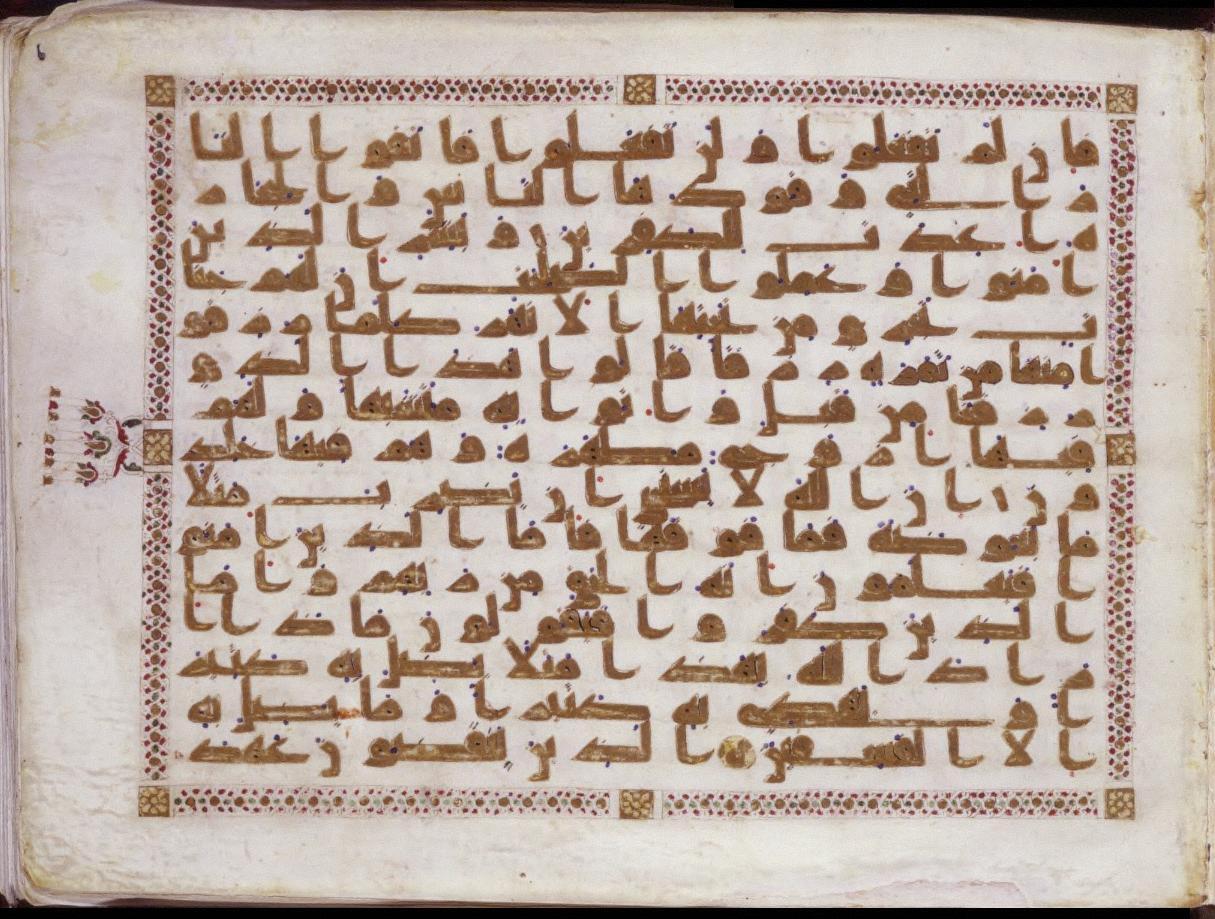 فان لم تفعلوا ولن تفعلوا فاتقوا النا
ر التى وقودها الناس والحجار
ة اعدت للكفرين وبشر الذين
امنوا وعملوا الصلحت ان لهم جنا
ت تجرى من تحتها الانهر كلما رزقو
ا منها من ثمرة رزقا قالوا هذا الذى
رزقنا من قبل واتوا به متشبها ولهم
فيها ازوج مطهرة وهم فيها خلد
ون ان الله لا يستحى ان يضرب مثلا
ما بعوضة فما فوقها فاما الذين امنو
ا فيعلمون انه الحق من ربهم واما
الذين كفروا فيقولون ماذا ا
راد الله بهذا مثلا يضل به كثير
ا ويهدى به كثيرا وما يضل به
الا الفسقين الذين ينقضون عهد